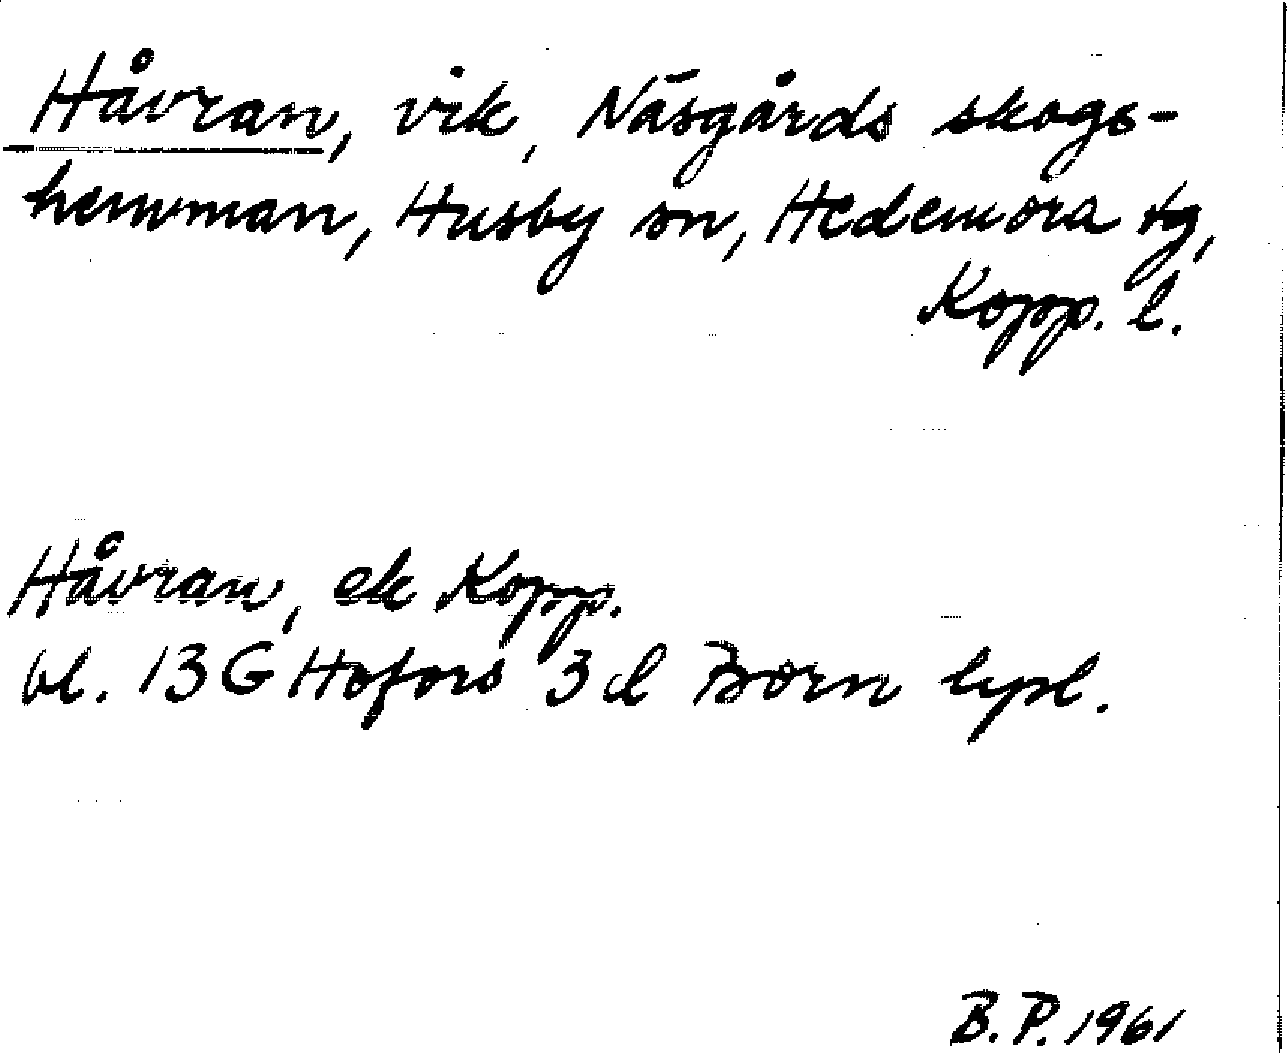 Håvran, vik, Näsgårds skogs-
hemman, Husby sn, Hedemora tg,
Kopp. l.
Håvran, ek Kopp.
bl. 13 G Hofors 3 d Born
B.P. 1961